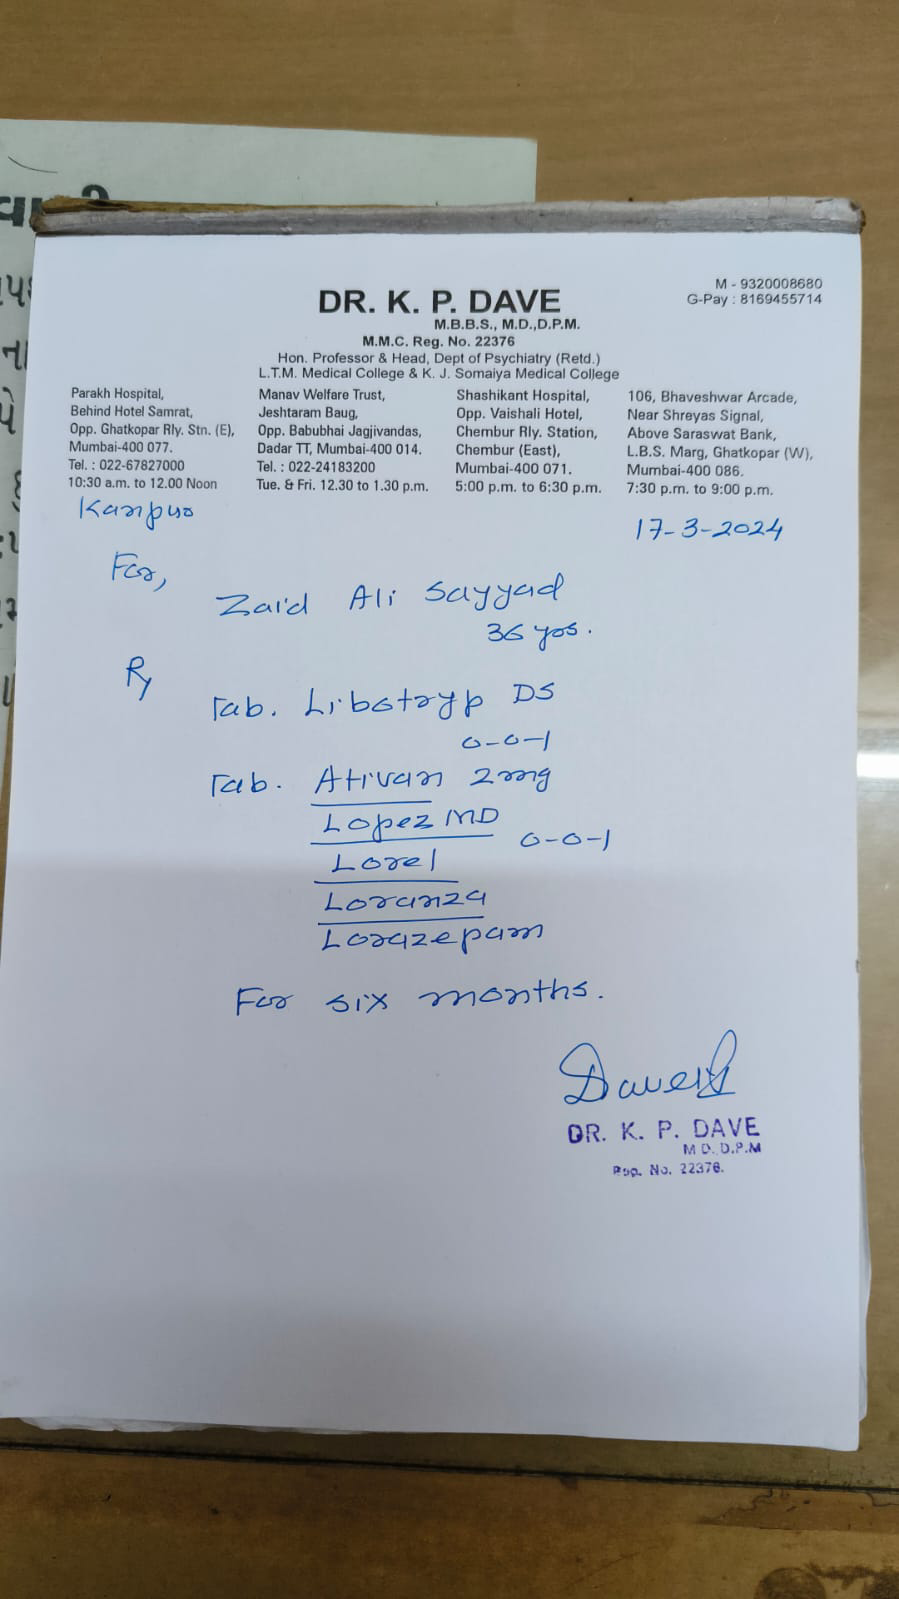 DR. K. P. DAVE
M.B.B.S., M.D.,D.P.M.
M.M.C. Reg. No. 22376
Hon. Professor & Head, Dept of Psychiatry (Retd.)
L.T.M. Medical College & K. J. Somaiya Medical College
M - 9320008680
G-Pay : 8169455714
Parakh Hospital,
Behind Hotel Samrat,
Opp. Ghatkopar Rly. Stn. (E),
Mumbai-400 077.
Tel. : 022-67827000
10:30 a.m. to 12.00 Noon
Manav Welfare Trust,
Jeshtaram Baug,
Opp. Babubhai Jagjivandas,
Dadar TT, Mumbai-400 014.
Tel. : 022-24183200
Tue. & Fri. 12.30 to 1.30 p.m.
Shashikant Hospital,
Opp. Vaishali Hotel,
Chembur Rly. Station,
Chembur (East),
Mumbai-400 071.
5:00 p.m. to 6:30 p.m.
106, Bhaveshwar Arcade,
Near Shreyas Signal,
Above Saraswat Bank,
L.B.S. Marg, Ghatkopar (W),
Mumbai-400 086.
7:30 p.m. to 9:00 p.m.
Kanpur
17-3-2024
For,
Zaid Ali Sayyad
36 yrs.
Rx
Tab. Libotryp DS
0-0-1
Tab. Ativan 2mg
Lopez MD
0-0-1
Lorel
Loranza
Lorazepam
For six months.
DR. K. P. DAVE
M D. D.P.M
Reg. No. 22376.